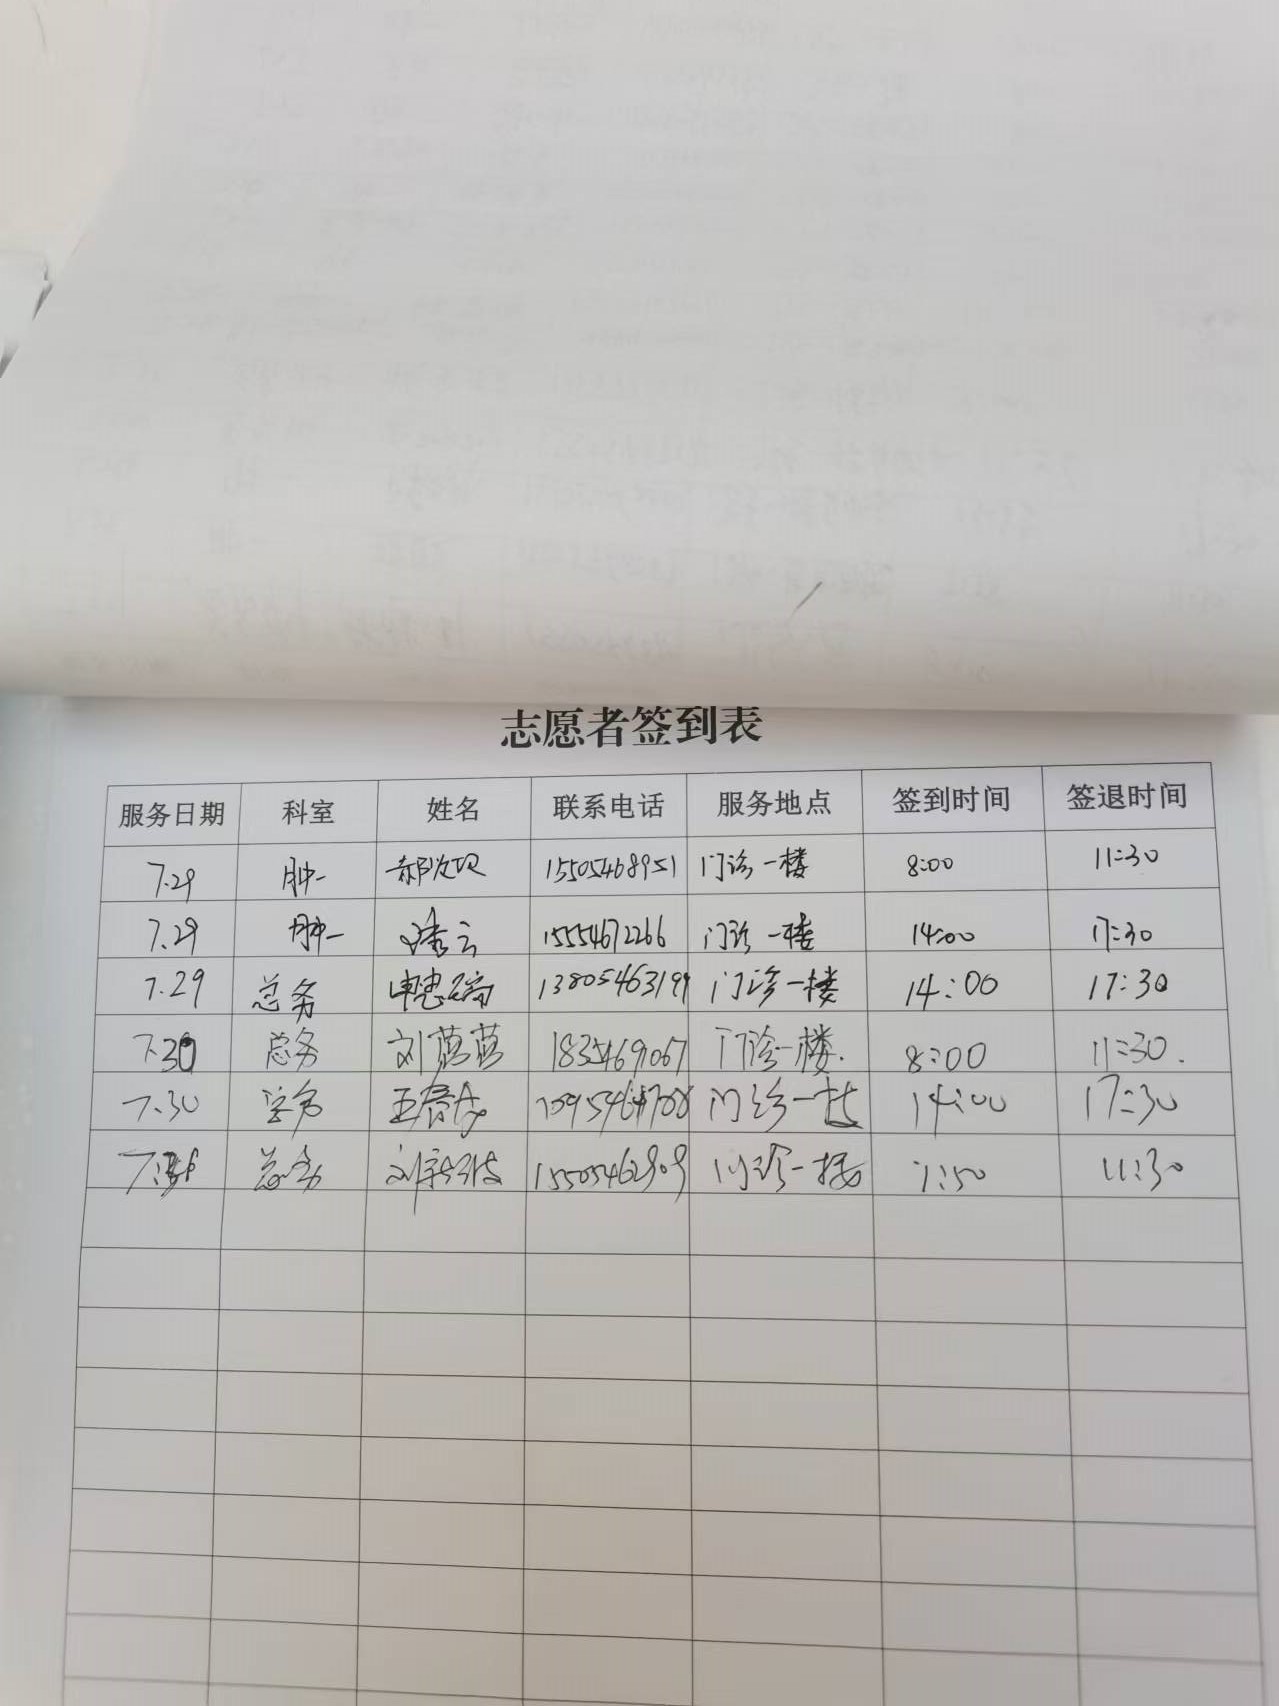 志愿者签到表
服务日期 科室 姓名 联系电话 服务地点 签到时间 签退时间
7.29 肿一 15505468951 门诊一楼 8:00 11:30
7.29 肿一 云 15554672266 门诊一楼 14:00 17:30
7.29 总务 13805463199 门诊一楼 14:00 17:30
7.30 总务 刘 门诊一楼. 8:00 11:30.
7.30 门诊一楼 14:00 17:30
总务 刘 15505462909 门诊一楼 7:50 11:30